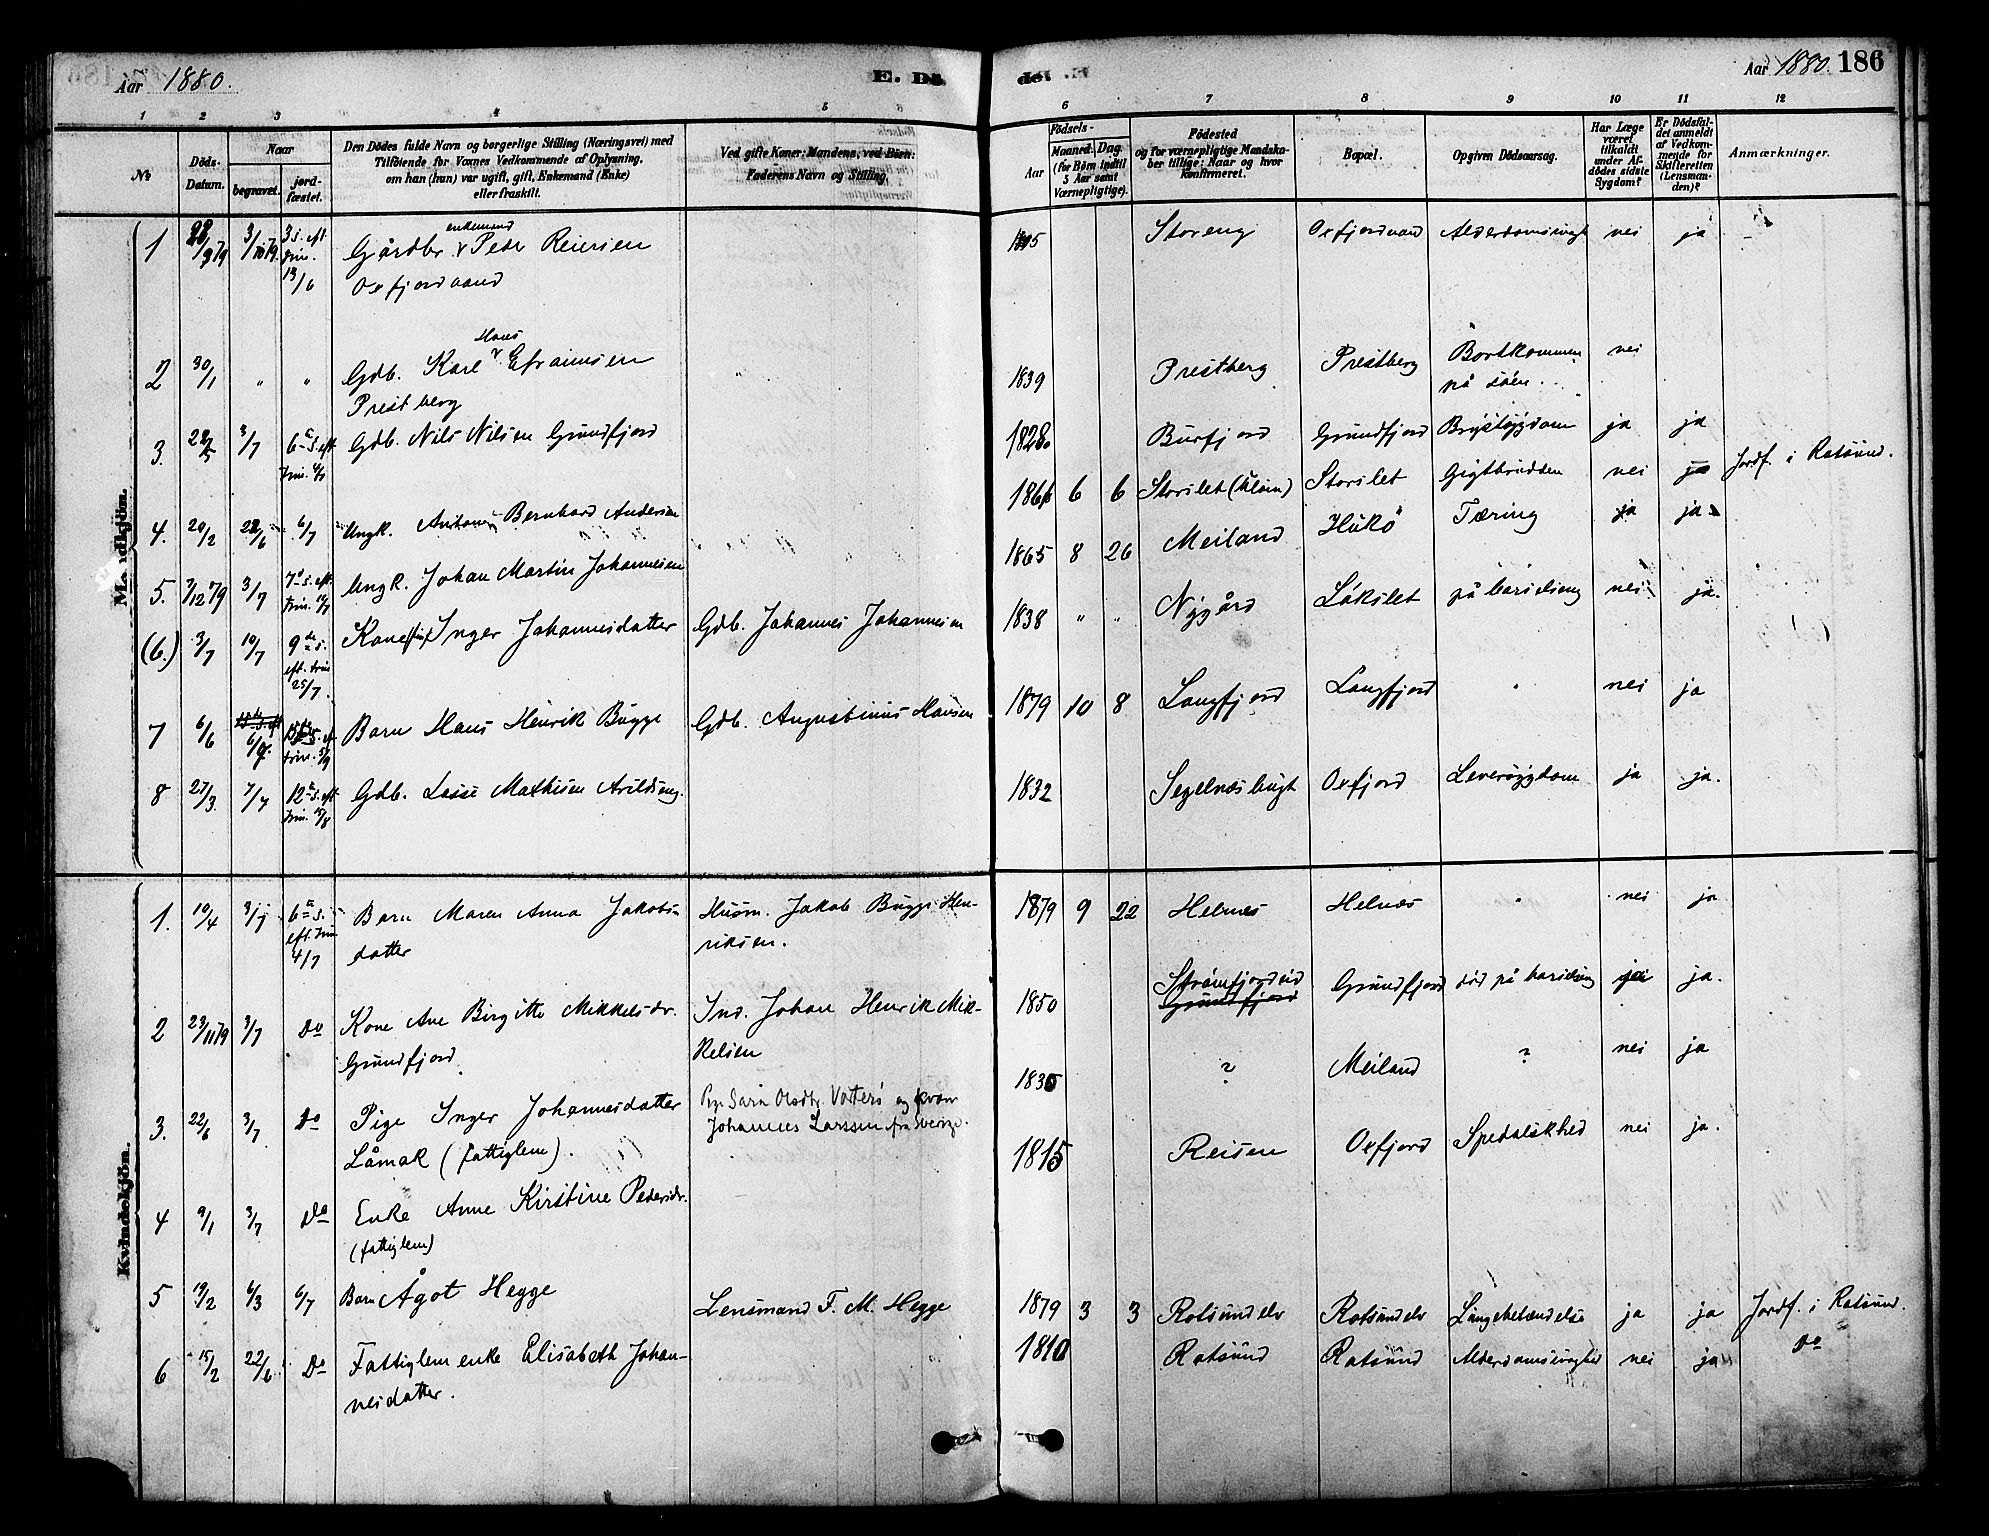 Aar 1880.
E. Dö-
de.
Aar 1880. 186
1 2 3 4 5 6
6 7 8 9 10 11 12
№
Döds-Datum.
Naar
begravet.
jord-fæstet.
Den Dödes fulde Navn og borgerlige Stilling (Næringsvei) med
Tilföiende for Voxnes Vedkommende af Oplysning,
om han (hun) var ugift, gift, Enkemand (Enke)
eller fraskilt.
Ved gifte Koner: Mandens, ved Börn:
Faderens Navn og Stilling.
Födsels-
Aar
Maaned. Dag.
(for Börn indtil
5 Aar samt
Værnepligtige).
Födested
og for værnepligtige Mandska-
ber tillige: Naar og hvor
konfirmeret.
Bopæl.
Opgiven Dödsaarsag.
Har Læge
været
tilkaldt
under Af-
dødes sidste
Sygdom?
Er Dödsfal-
det anmeldt
af Vedkom-
mende for
Skifteretten
(Lensman-
den)?
Anmærkninger.
Mandkjön.
1 28/9 79 3/10 79 3 s. eft. trin. 13/6 Gårdbr. enkemand Peder Reiersen Storeng Oxfjordvand nei ja
Oxfjordvand
2 30/1 " " Gdb. Karl Hans Efraimsen 1839 Prestberg Prestberg Bortkommen nei
Prestberg på söen.
3. 3/7 6te s. eft. trin. 4/7 Gdb. Nils Nilsen Grundfjord 1828 Burfjord Grundfjord Brystsygdom ja ja
4. 20/2 22/6 6/7 Ungk. Bernhard Andersen 1866 6 6 Storslet Storslet nei ja Jordf. i Rotsund.
5. 7/12 79 3/7 7de s. eft. trin. Ungk. Johan Martin Johannesen 1865 8 26 Meiland Hukö Tæring ja ja
(6.) 3/7 10/7 9de s. eft. trin. 25/7 Kone Inger Johannesdatter Gdb. Johannes Johannesen 1838 " " Nygård Låkslet på barselseng nei ja.
7 6/6 6/9 eft. trin. 5/9 Barn Hans Henrik Bugge Gdb. Augustinus Hansen 1879 10 8 Langfjord Langfjord " nei ja
8 27/3. 7/7 12te s. eft. trin. 15/8 Gdb. Lasse Mathisen 1832 Segelnæsbugt Oxfjord Leversygdom ja ja.
Kvindekjön.
1. 10/4 3/7 6te s. eft. trin 4/7 Barn Maren Anna Jakobs- Husm. Jakob Bugge Hen- 1879 9 22 Helnes Helnæs " nei ja
datter riksen.
2 23/11 79 3/7 Do Kone Ane Birgitte Mikkelsdr. Ind. Johan Henrik Mik- 1850 Strömfjordeid Grundfjord Grundfjord död på barselseng ja.
Grundfjord kelsen
3. 22/6 3/7 Do Pige Inger Johannesdatter Pige Sara Olsdtr. og kvæn 1835 ? Meiland ? nei ja
Låmak (fattiglem). Johannes Larssen fra Sverige.
4 9/1 3/7 Do Enke Anne Kirstine Pedersdr. 1815 Reisen Oxfjord Spedalskhed nei ja.
(fattiglem)
5 19/2 6/3 6/7 Barn Ågot Hegge Lensmand F. M. Hegge 1879 3 3 Rotsundelv Rotsundelv Lungebetændelse ja ja Jordf. i Rotsund
6 15/2 22/6 Do Fattiglem enke Elisabeth Johan- 1810 Rotsund Rotsund Alderdomssvaghed nei ja Do
nesdatter.